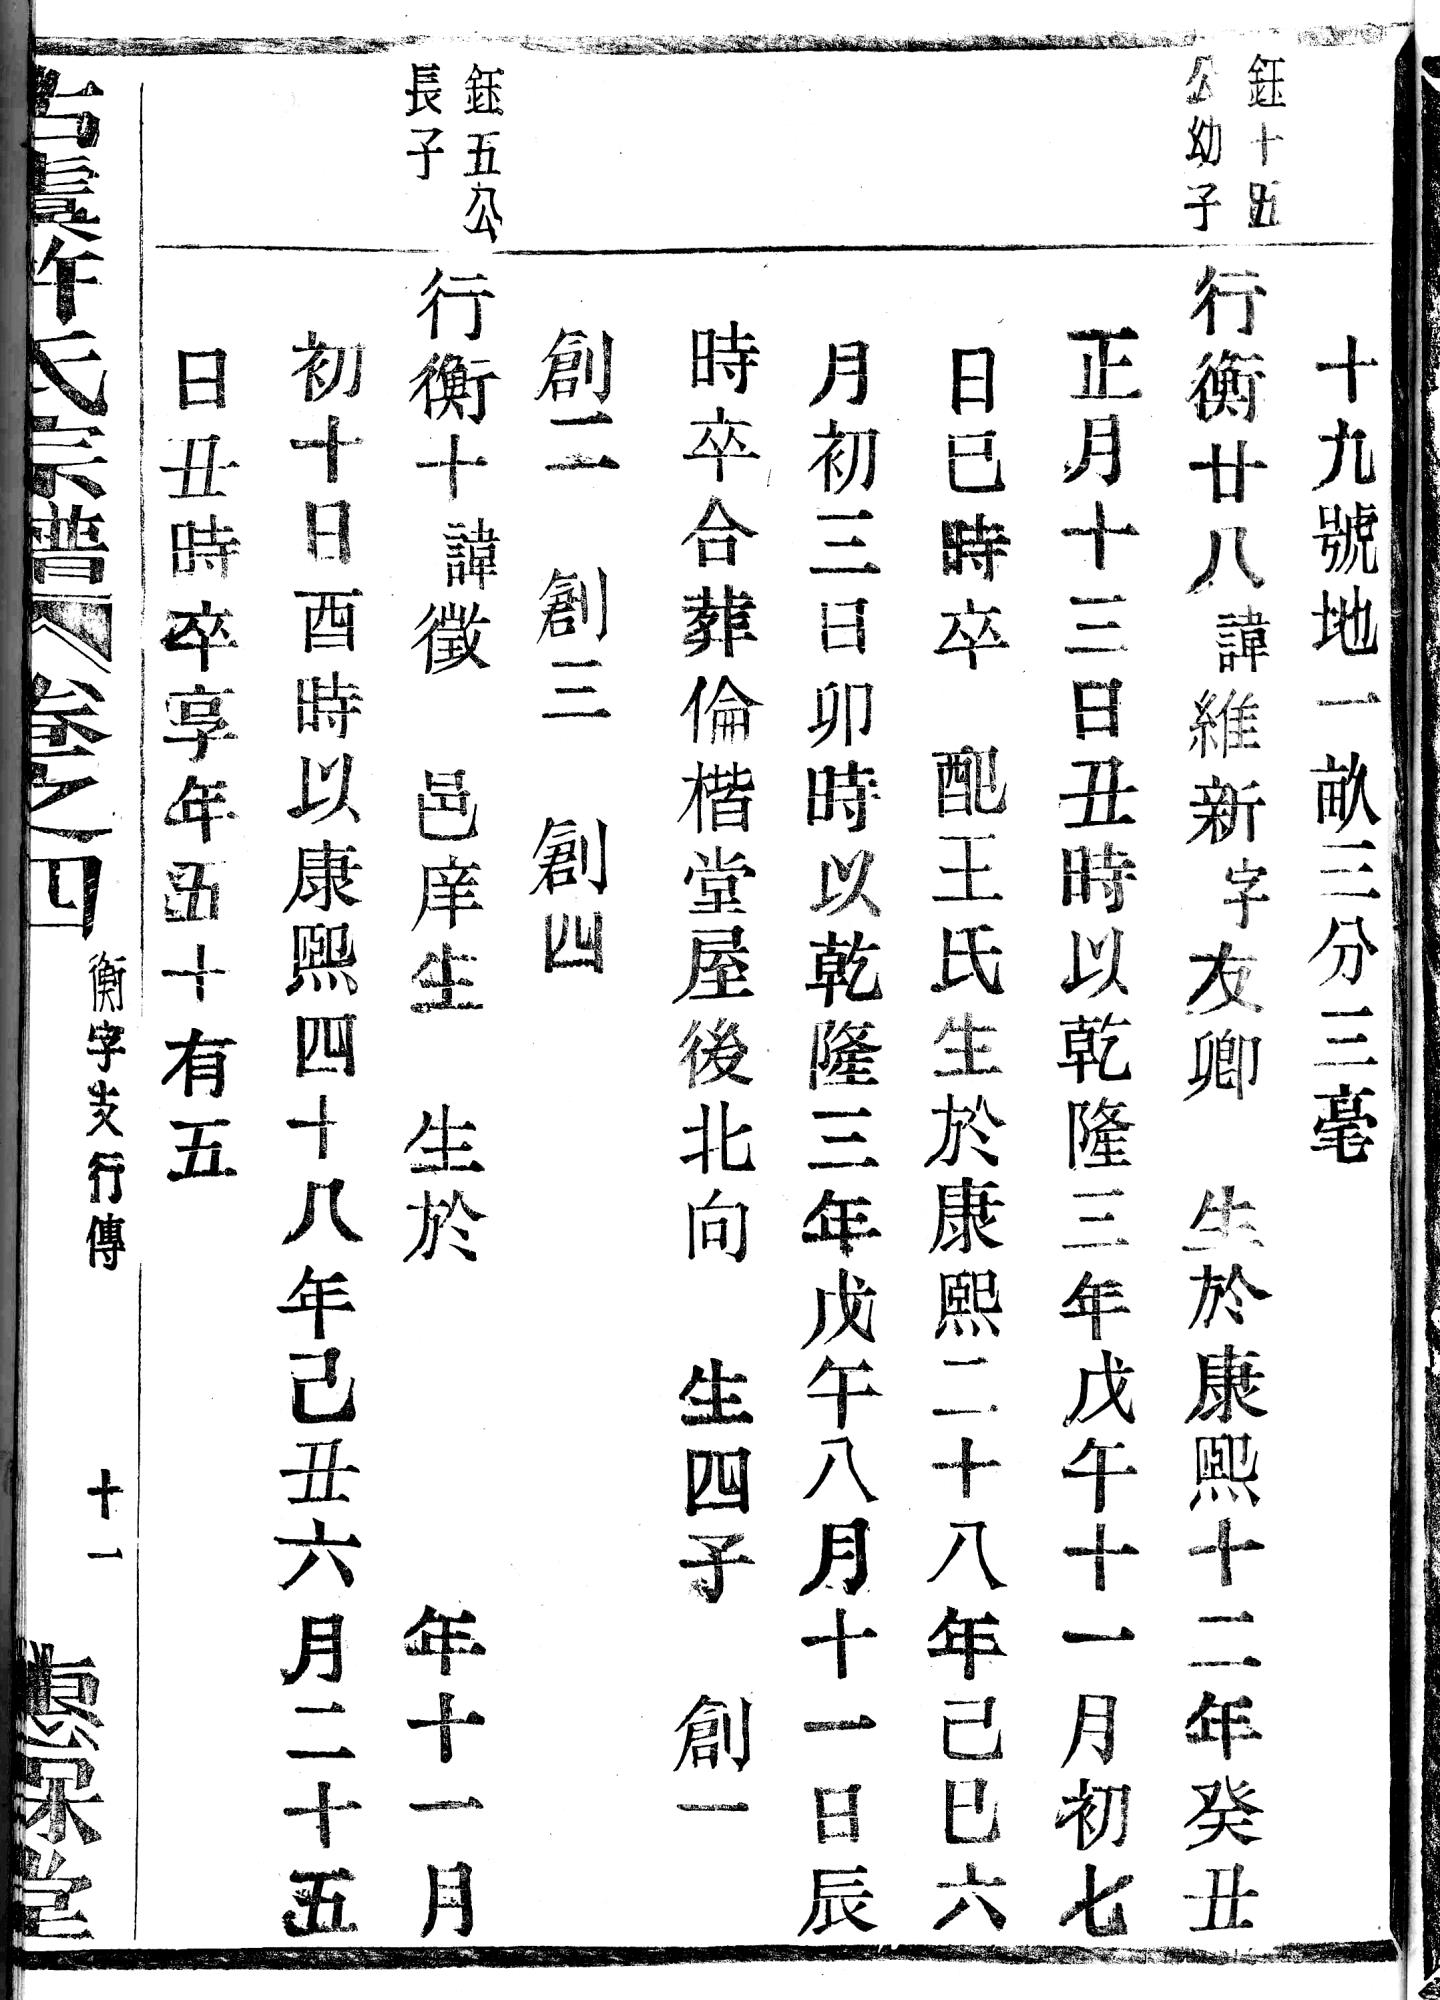 十九號地一畝三分三毫
鈺十五
公幼子
行衡廿八諱維新字友卿　生於康熙十二年癸丑
正月十三日丑時以乾隆三年戊午十一月初七
日巳時卒　配王氏生於康熙二十八年己巳六
月初三日卯時以乾隆三年戊午八月十一日辰
時卒合葬倫楷堂屋後北向　生四子　創一
創二　創三　創四
鈺五公
長子
行衡十諱徵　邑庠生　生於　年十一月
初十日酉時以康熙四十八年己丑六月二十五
日丑時卒享年五十有五
古虞許氏宗譜　卷之四　衡字支行傳　十一　惠保堂